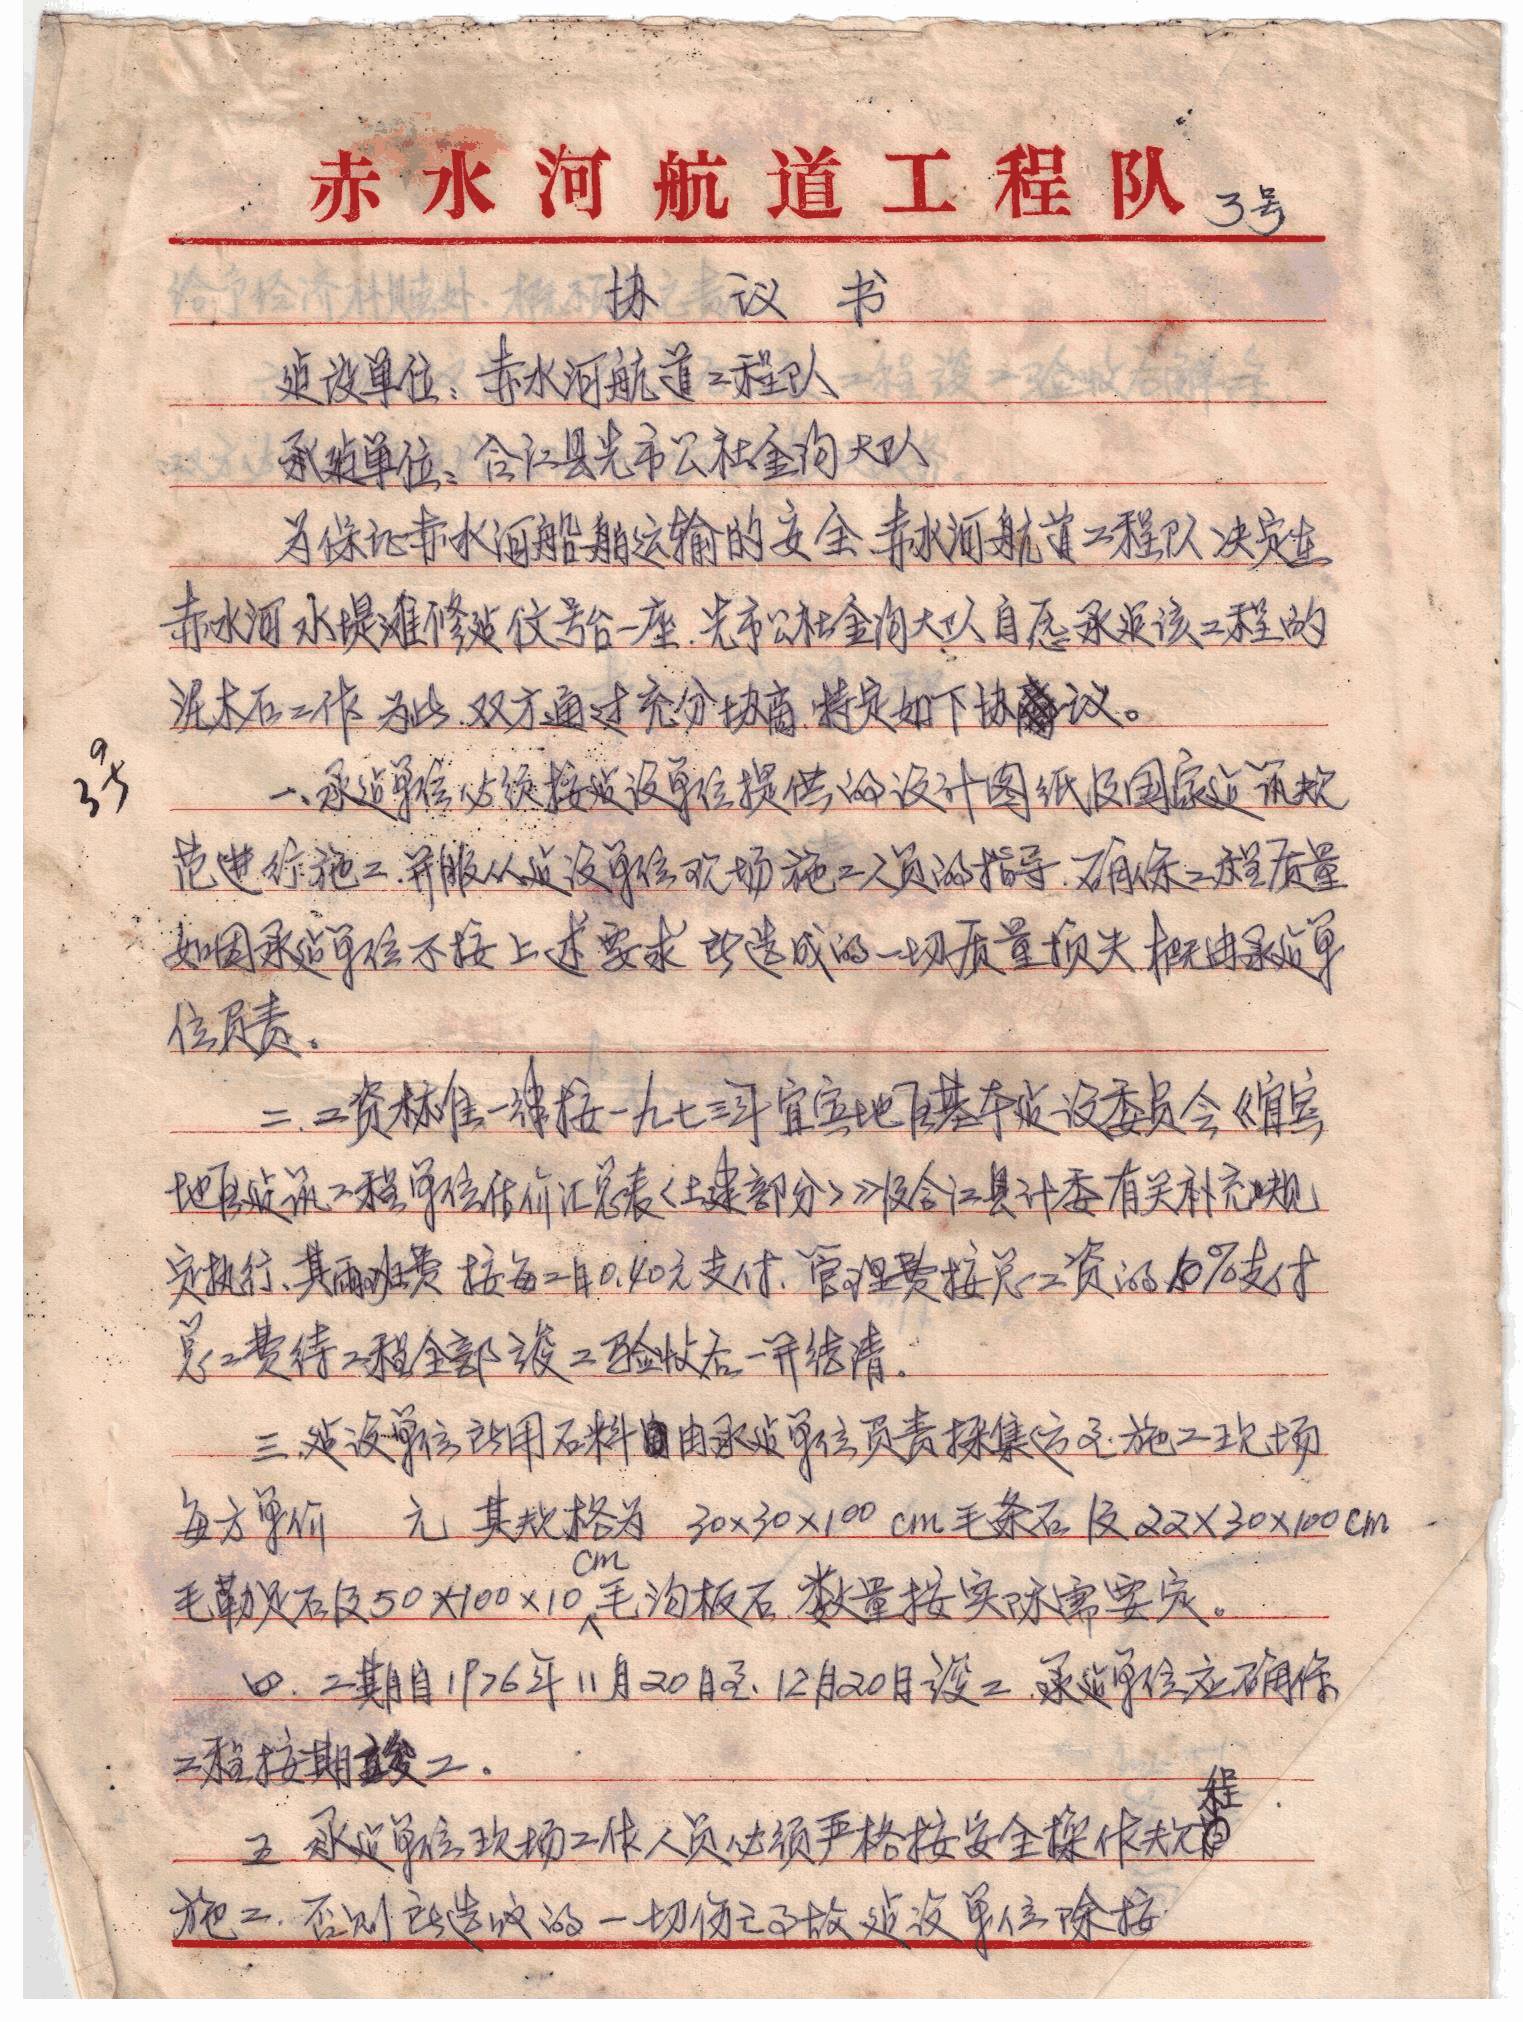 赤水河航道工程队 3号
协议书
建设单位：赤水河航道工程队
承建单位：合江县先市公社金沟大队
为保证赤水河船舶运输的安全.赤水河航道工程队决定在
赤水河水堤滩修建仪号台一座.先市公社金沟大队自愿承建该工程的
泥木石工作.为此.双方通过充分协商.特定如下协议。
一、承建单位必须按建设单位提供的设计图纸及国家建筑规
范进行施工.并服从建设单位现场施工人员的指导.确保工程质量
如因承建单位不按上述要求所造成的一切质量损失概由承建单
位负责。
二.工资标准一律按一九七三年宜宾地区基本建设委员会《宜宾
地区建筑工程单位估价汇总表〈土建部分〉》及合江县计委有关补充规
定执行、其雨班费按每工日0.40元支付.管理费按总工资的10%支付
总工费待工程全部竣工验收后一并结清。
三.建设单位所用石料由承建单位负责採集运至施工现场
每方单价 元 其规格为 30×30×100 cm毛条石及22×30×100cm
毛勒足石及50×100×10cm毛沟板石.数量按实际需要定。
四.工期自1976年11月20日至12月20日竣工.承建单位应确保
工程按期竣工.
五 承建单位现场工作人员必须严格按安全操作规程
施工.否则所造成的一切伤亡事故建设单位除按
395